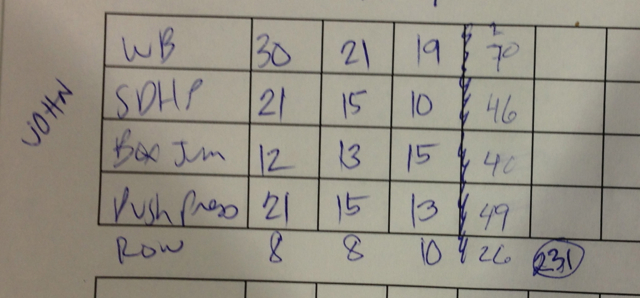 WB 30 21 19 70
JOHN
SDHP 21 15 10 46
Box Jum 12 13 15 40
Push Press 21 15 13 49
ROW 8 8 10 26 231